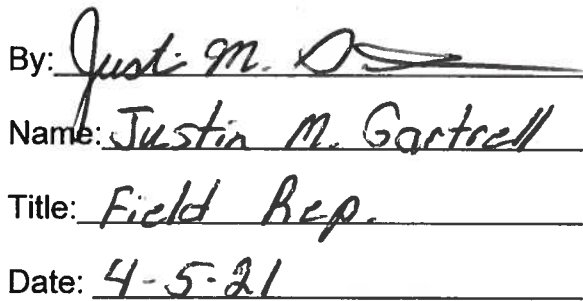 By: Justi M.
Name: Justin M. Gartrell
Title: Field Rep.
Date: 4-5-21